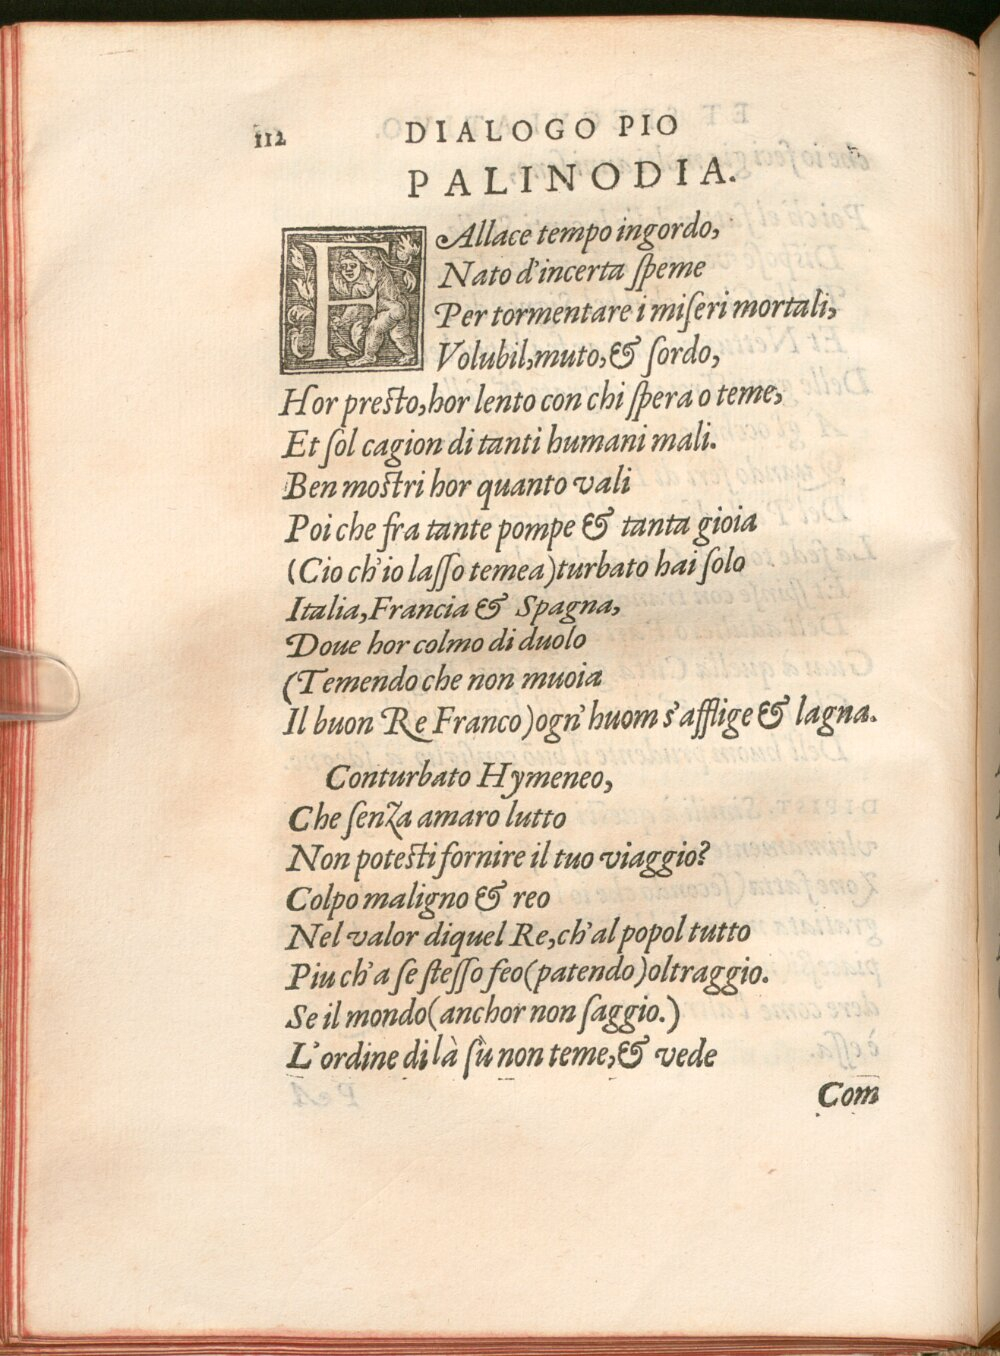 112 DIALOGO PIO
PALINODIA.
FAllace tempo ingordo,
Nato d'incerta ſpeme
Per tormentare i miſeri mortali,
Volubil,muto,& ſordo,
Hor preſto,hor lento con chi ſpera o teme,
Et ſol cagion di tanti humani mali.
Ben moſtri hor quanto vali
Poi che fra tante pompe & tanta gioia
(Cio ch'io laſſo temea)turbato hai ſolo
Italia,Francia & Spagna,
Doue hor colmo di duolo
(Temendo che non muoia
Il buon Re Franco)ogn'huom s'afflige & lagna.
Conturbato Hymeneo,
Che ſenza amaro lutto
Non poteſti fornire il tuo viaggio?
Colpo maligno & reo
Nel valor diquel Re,ch'al popol tutto
Piu ch'a ſe ſteſſo feo(patendo)oltraggio.
Se il mondo(anchor non ſaggio.)
L'ordine di là ſù non teme,& vede
Com